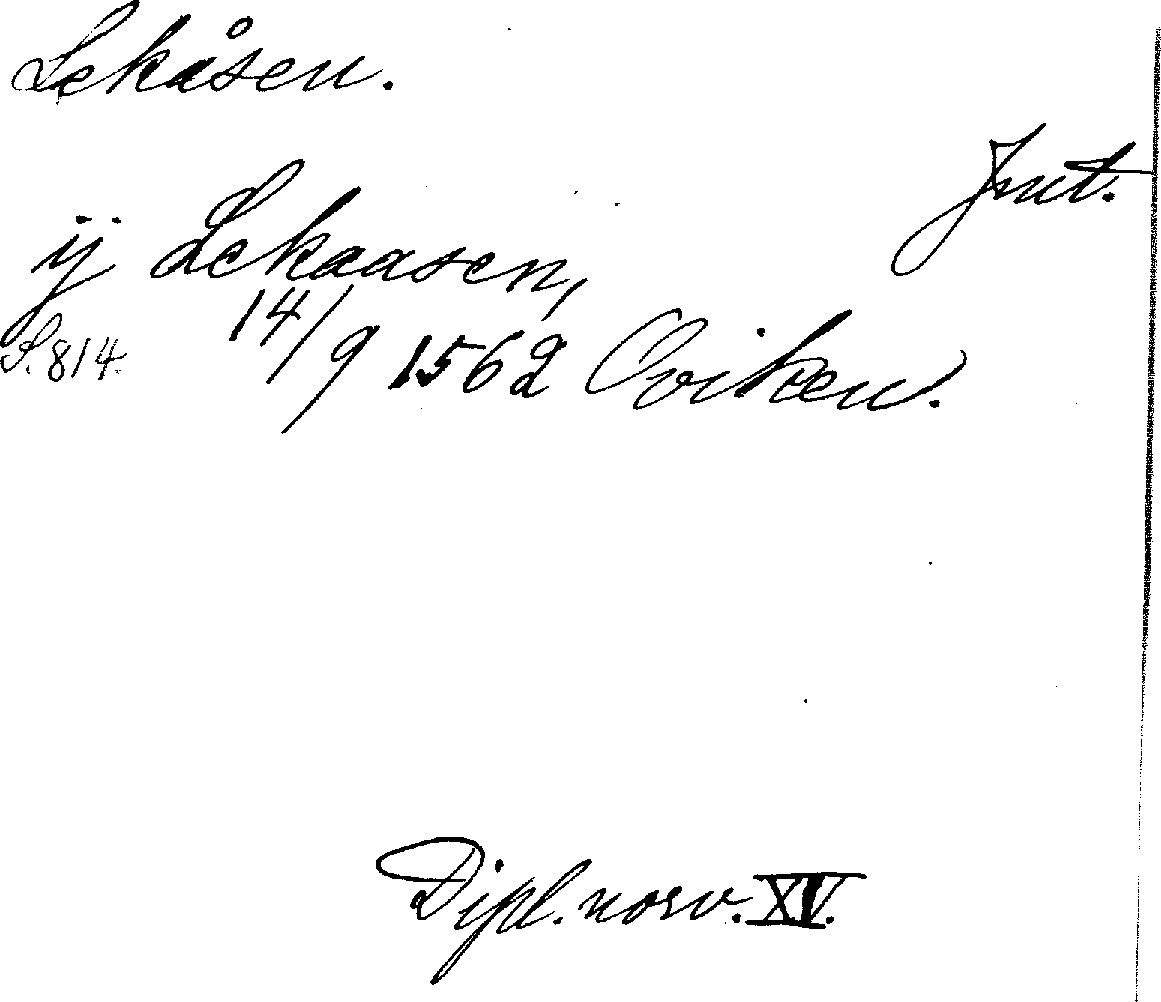 Lekåsen.
Jmt.
ij Lekaasen,
S. 814. 14/9 1562 Oviken.
Dipl. norv. XV.